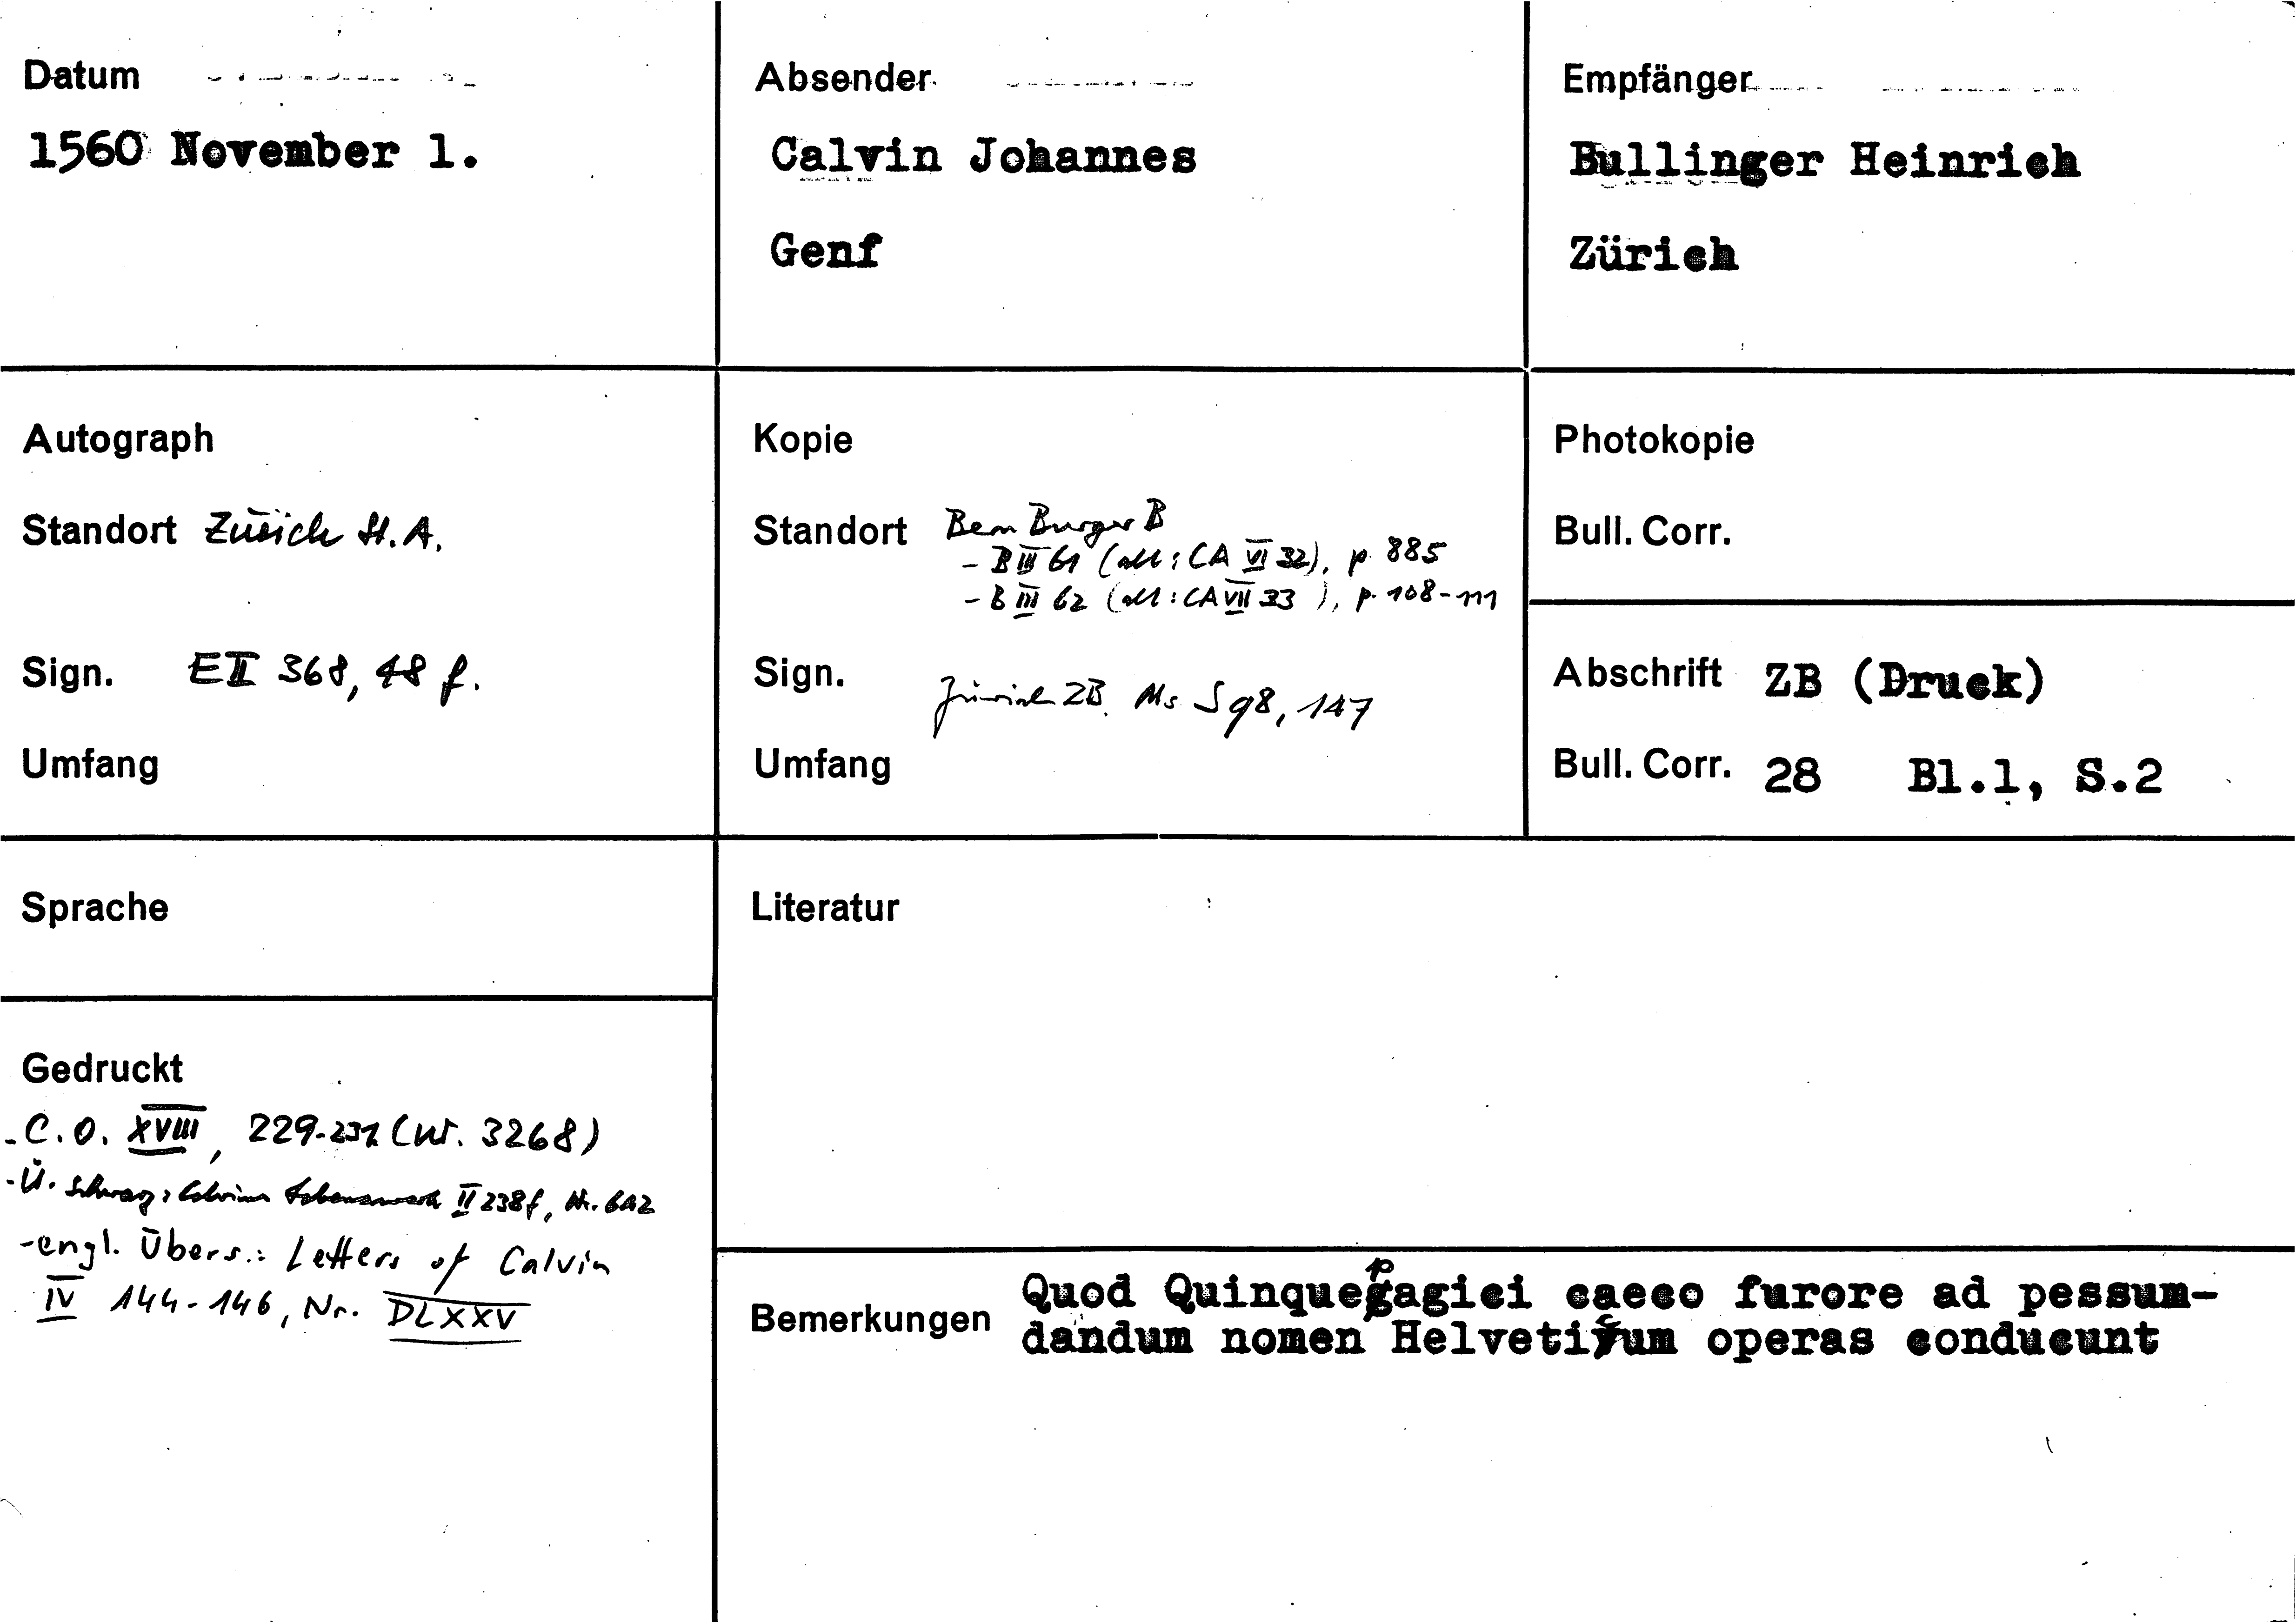 Datum
1560 November 1.
Absender
Calvin Johannes
Genf
Empfänger
Bullinger Heinrich
Zürich
Autograph
Standort Zürich St.A.
Sign. E II 368, 48 f.
Umfang
Kopie
Standort Bern Burger B
- B III 61 (alt: CA VI 32), p. 885
- B III 62 (alt: CA VII 33), p. 108-111
Sign. Zürich ZB. Ms S 98, 147
Umfang
Photokopie
Bull. Corr.
Abschrift ZB (Druck)
Bull. Corr. 28 Bl.1, S.2
Sprache
Literatur
Gedruckt
- C.O. XVIII, 229-231 (Nr. 3268)
- Ü. Schwarz: Calvins Lebenswerk II 238f, Nr. 642
- engl. Übers.: Letters of Calvin
IV 144-146, Nr. DLXXV
Bemerkungen
Quod Quinquepagici caeco furore ad pessum-
dandum nomen Helveticum operas conducunt